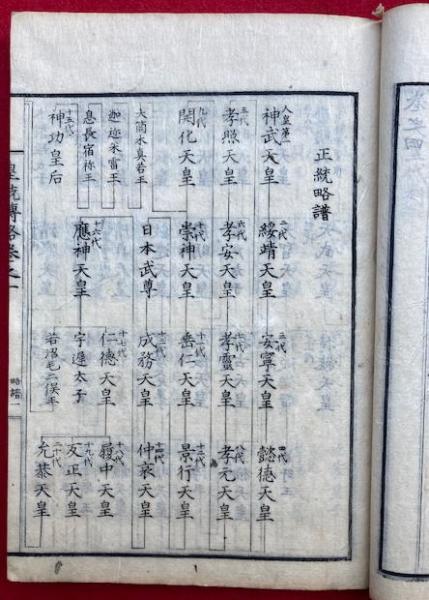 正統略譜
人皇第一
神武天皇
二代
綏靖天皇
三代
安寧天皇
四代
懿德天皇
五代
孝照天皇
六代
孝安天皇
七代
孝靈天皇
八代
孝元天皇
九代
開化天皇
十代
崇神天皇
十一代
垂仁天皇
十二代
景行天皇
大筒木真若王
日本武尊
十三代
成務天皇
十四代
仲哀天皇
迦迩米雷王
息長宿祢王
十五代
神功皇后
十六代
應神天皇
十七代
仁德天皇
十八代
履中天皇
宇遲太子
十九代
反正天皇
若沼毛二俣王
二十代
允恭天皇
皇統傳略卷之一
略譜一